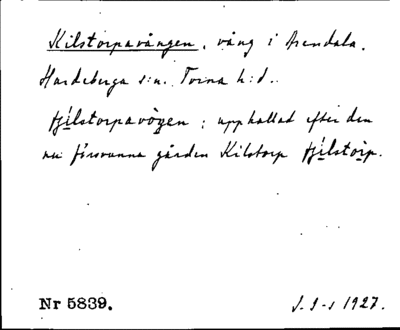 Kilstorpavången, vång i Arendala.
Hardeberga s:n. Torna h:d.
tjilstorpavọ̈gen ; uppkallad efter den
nu försvunna gården Kilstorp tjilstorp.
Nr 5839. 1927.